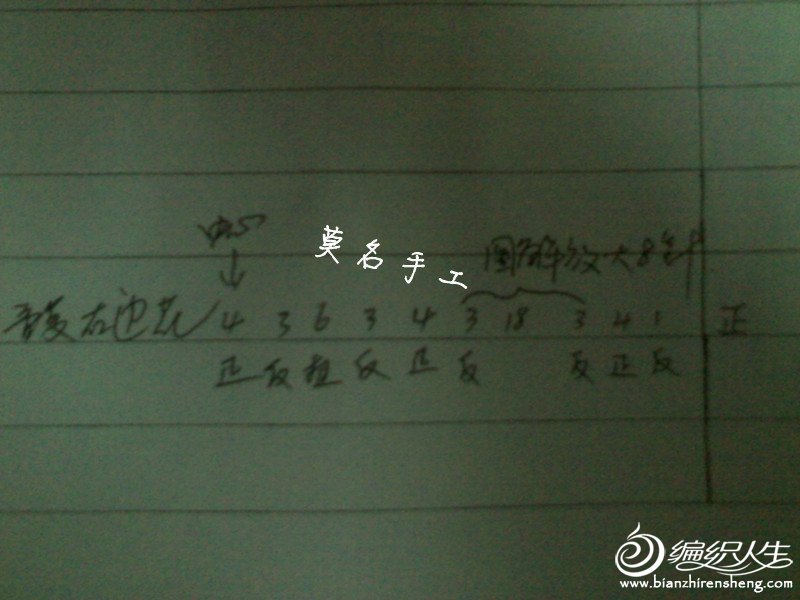 中心
莫名手工
图解放大8针
右边花 4 3 6 3 4 3 18 3 4 1 正
正 反 拉 反 正 反 反 正 反
编织人生
www.bianzhirensheng.com